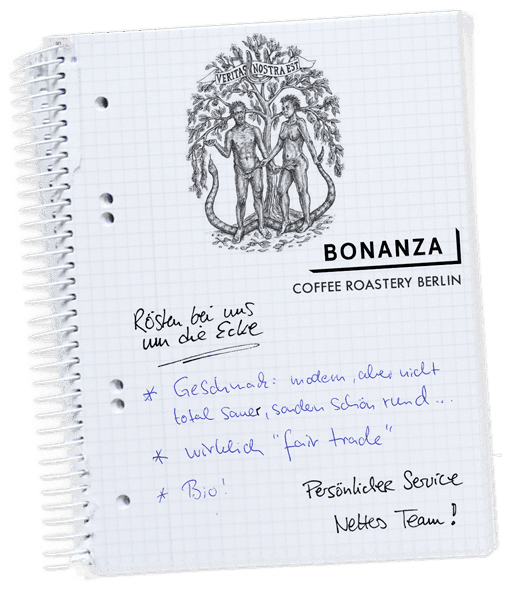 VERITAS NOSTRA EST
BONANZA
COFFEE ROASTERY BERLIN
Rösten bei uns
um die Ecke
* Geschmack: modern, aber nicht
total sauer, sondern schön rund...
* wirklich "fair trade"
* Bio!
Persönlicher Service
Nettes Team!